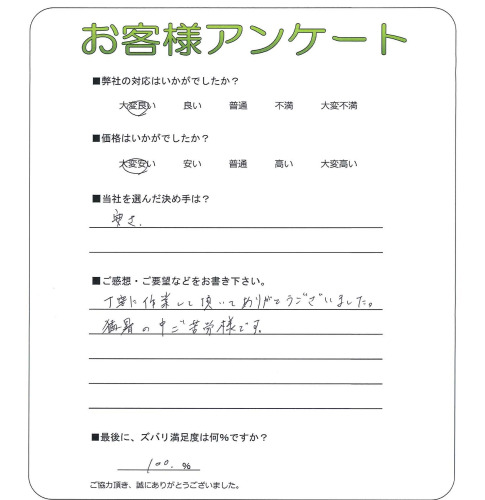 お客様アンケート
■弊社の対応はいかがでしたか？
大変良い 良い 普通 不満 大変不満
■価格はいかがでしたか？
大変安い 安い 普通 高い 大変高い
■当社を選んだ決め手は？
安さ.
■ご感想・ご要望などをお書き下さい。
丁寧に作業して頂いてありがとうございました。
猛暑の中ご苦労様です.
■最後に、ズバリ満足度は何％ですか？
100. ％
ご協力頂き、誠にありがとうございました。